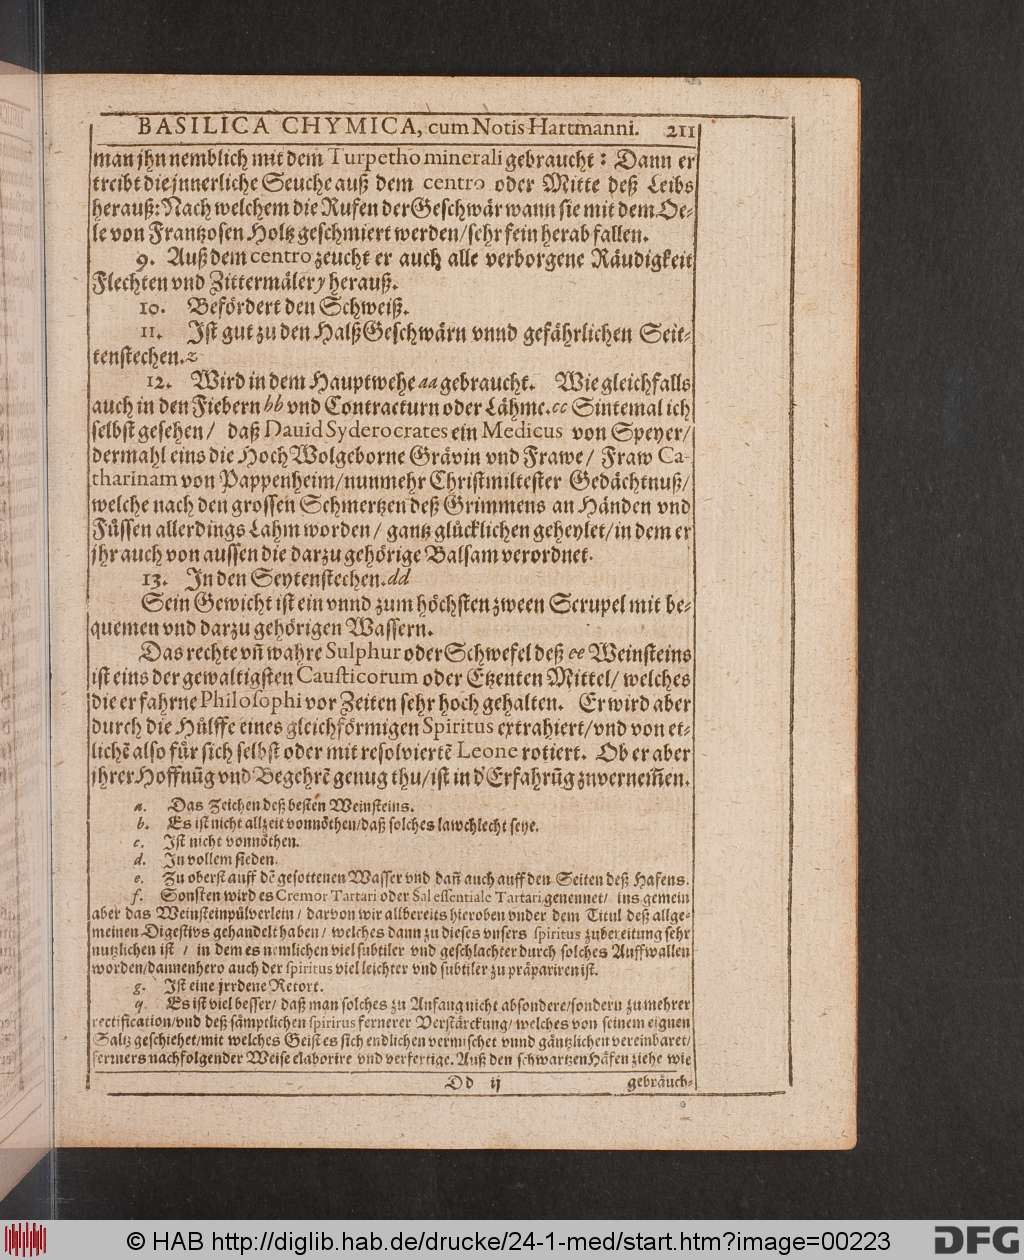 BASILICA CHYMICA, cum Notis Hartmanni. 211
man jhn nemblich mit dem Turpetho minerali gebraucht: Dann er
treibt die jnnerliche Seuche auß dem centro oder Mitte deß Leibs
herauß: Nach welchem die Rufen der Geschwär wann sie mit dem Oe-
le von Frantzosen Holtz geschmiert werden/ sehr fein herab fallen.
9. Auß dem centro zeucht er auch alle verborgene Räudigkeit
Flechten vnd Zittermäler y herauß.
10. Befördert den Schweiß.
11. Jst gut zu den Halß Geschwärn vnnd gefährlichen Seit-
tenstechen. z
12. Wird in dem Hauptwehe aa gebraucht. Wie gleichfalls
auch in den Fiebern bb vnd Contracturn oder Lähme. cc Sintemal ich
selbst gesehen/ daß Dauid Syderocrates ein Medicus von Speyer/
dermahl eins die Hoch Wolgeborne Grävin vnd Frawe/ Fraw Ca-
tharinam von Pappenheim/ nunmehr Christmiltester Gedächtnuß/
welche nach den grossen Schmertzen deß Grimmens an Händen vnd
Füssen allerdings Lahm worden/ gantz glücklichen geheylet/ in dem er
jhr auch von aussen die darzu gehörige Balsam verordnet.
13. Jn den Seytenstechen. dd
Sein Gewicht ist ein vnnd zum höchsten zween Scrupel mit be-
quemen vnd darzu gehörigen Wassern.
Das rechte vn̄ wahre Sulphur oder Schwefel deß ee Weinsteins
ist eins der gewaltigsten Causticorum oder Etzenten Mittel/ welches
die erfahrne Philosophi vor Zeiten sehr hoch gehalten. Er wird aber
durch die Hülffe eines gleichförmigen Spiritus extrahiert/ vnd von et-
lichē also für sich selbst oder mit resolviertē Leone rotiert. Ob er aber
jhrer Hoffnūg vnd Begehrē genug thu/ ist in d' Erfahrūg zuvernem̄en.
a. Das Zeichen deß besten Weinsteins.
b. Es ist nicht allzeit vonnöthen/ daß solches lawchlecht seye.
c. Jst nicht vonnöthen.
d. Jn vollem sieden.
e. Zu oberst auff dē gesottenen Wasser vnd dan̄ auch auff den Seiten deß Hafens.
f. Sonsten wird es Cremor Tartari oder Sal essentiale Tartari genennet/ ins gemein
aber das Weinsteinpülverlein/ darvon wir allbereits hieroben vnder dem Titul deß allge-
meinen Digestivs gehandelt haben/ welches dann zu dieses vnsers spiritus zubereitung sehr
nutzlichen ist/ in dem es nemlichen viel subtiler vnd geschlachter durch solches Auffwallen
worden/ dannenhero auch der spiritus viel leichter vnd subtiler zu präpariren ist.
g. Jst eine jrrdene Retort.
q. Es ist viel besser/ daß man solches zu Anfang nicht absondere/ sondern zu mehrer
rectification/ vnd deß sämptlichen spiritus fernerer Verstärckung/ welches von seinem eignen
Saltz geschiehet/ mit welches Geist es sich endlichen vermischet vnnd gäntzlichen vereinbaret/
ferners nachfolgender Weise elaborire vnd verfertige. Auß den schwartzen Häfen ziehe wie
Dd ij gebräuch-
© HAB http://diglib.hab.de/drucke/24-1-med/start.htm?image=00223
DFG